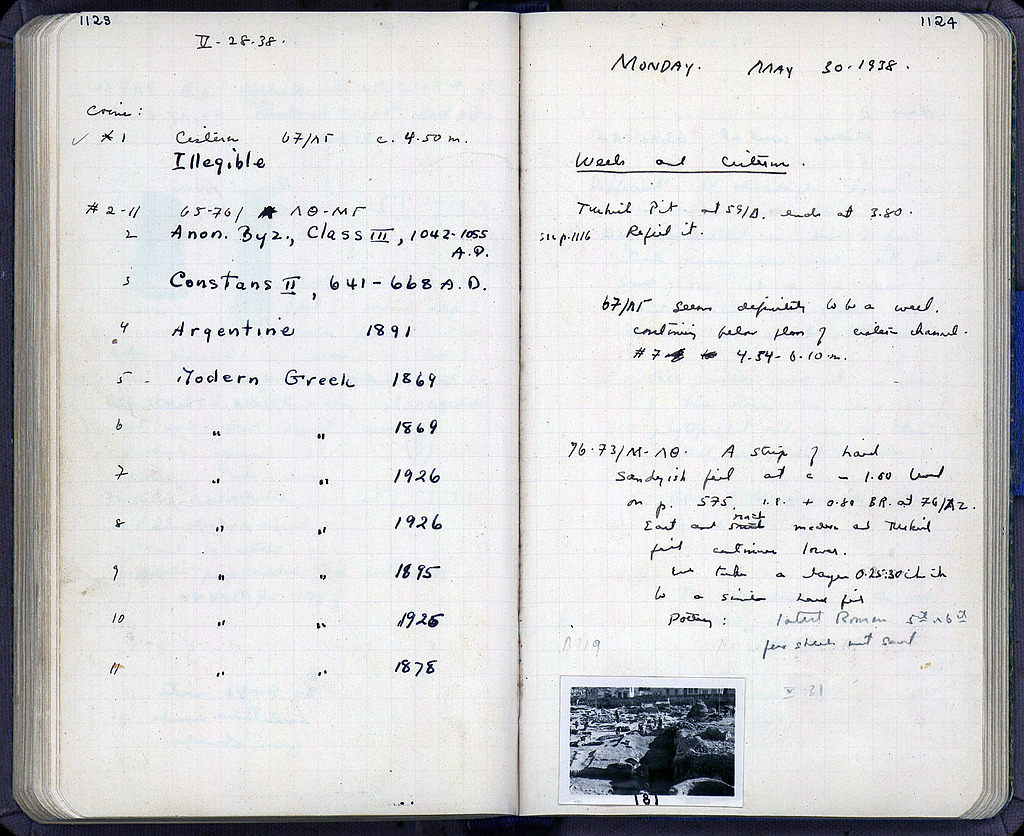 1123
V-28-38.
Coins:
✓ #1 Cistern 67/ΛΓ c. 4.50 m.
Illegible
#2-11 65-76/ ΛΘ-ΜΓ
2 Anon. Byz., Class III, 1042-1055
A.D.
3 Constans II, 641-668 A.D.
4 Argentine 1891
5 - Modern Greek 1869
6 " " 1869
7 " " 1926
8 " " 1926
9 " " 1895
10 " " 1926
11 " " 1878
1124
MONDAY. MAY 30.1938.
Wells and Cisterns.
Turkish Pit at 59/Δ. ends at 3.80.
see p.1116 Refill it.
67/ΛΓ seems definitely to be a well.
continuing below floor of cistern channel.
#7 4.54-6.10 m.
76-73/Μ-ΛΘ. A strip of hard
sandyish fill at c - 1.80 level
on p. 575. i.e. + 0.80 BR. at 76/
East and modern and Turkish
fill continues lower.
We take a layer 0.25-30 thick
to a similar hard fill
Pottery: latest Roman 5th-6th
few sherds not saved
V-31
181